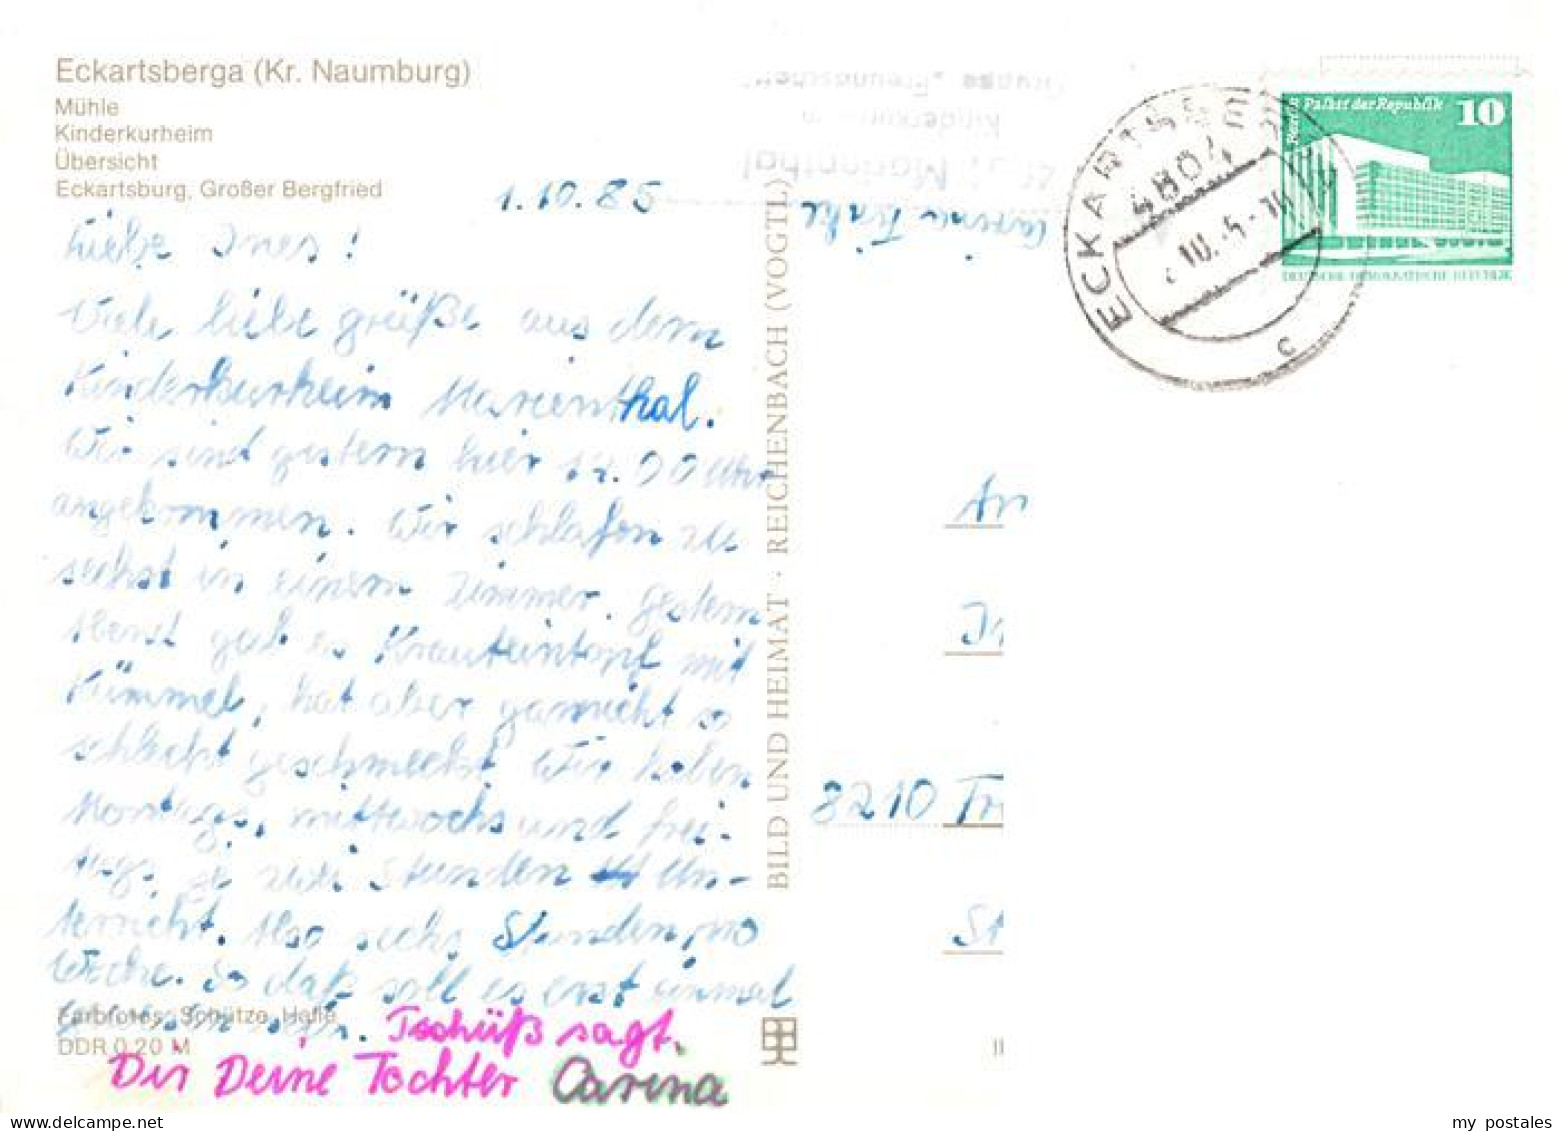 Eckartsberga (Kr. Naumburg)
Mühle
Kinderkurheim
Übersicht
Eckartsburg, Großer Bergfried
1.10.85
Liebe Ines!
Viele liebe grüße aus dem
Kinderkurheim Marienthal.
Wir sind gestern hier 12.00 Uhr
angekommen. Wir schlafen zu
sechst in einem Zimmer. Gestern
abend gab es Krauteintopf mit
Kümmel, hat aber garnicht so
schlecht geschmeckt. Wir haben
Montags, mittwochs und frei-
tags je zwei Stunden Un-
terricht. Also sechs Stunden, pro
Woche. So daß soll es erst einmal
Tschüß sagt.
Dir Deine Tochter Carina
Farbfotos: Schütze, Halle
DDR 0,20 M
BILD UND HEIMAT · REICHENBACH (VOGTL)
Carina
Marienthal
Kinderkurheim
ECKARTSBE
4804
10.-5-10
c
Berlin Palast der Republik 10
DEUTSCHE DEMOKRATISCHE REPUBLIK
An
8210 Tr
St
my postales